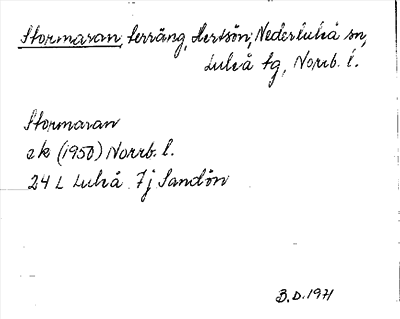 Stormaran, terräng, Hertsön, Nederluleå sn,
Luleå tg, Norrb. l.
Stormaran
ek (1950) Norrb. l.
24 L Luleå 7j Sandön
B.D. 1971